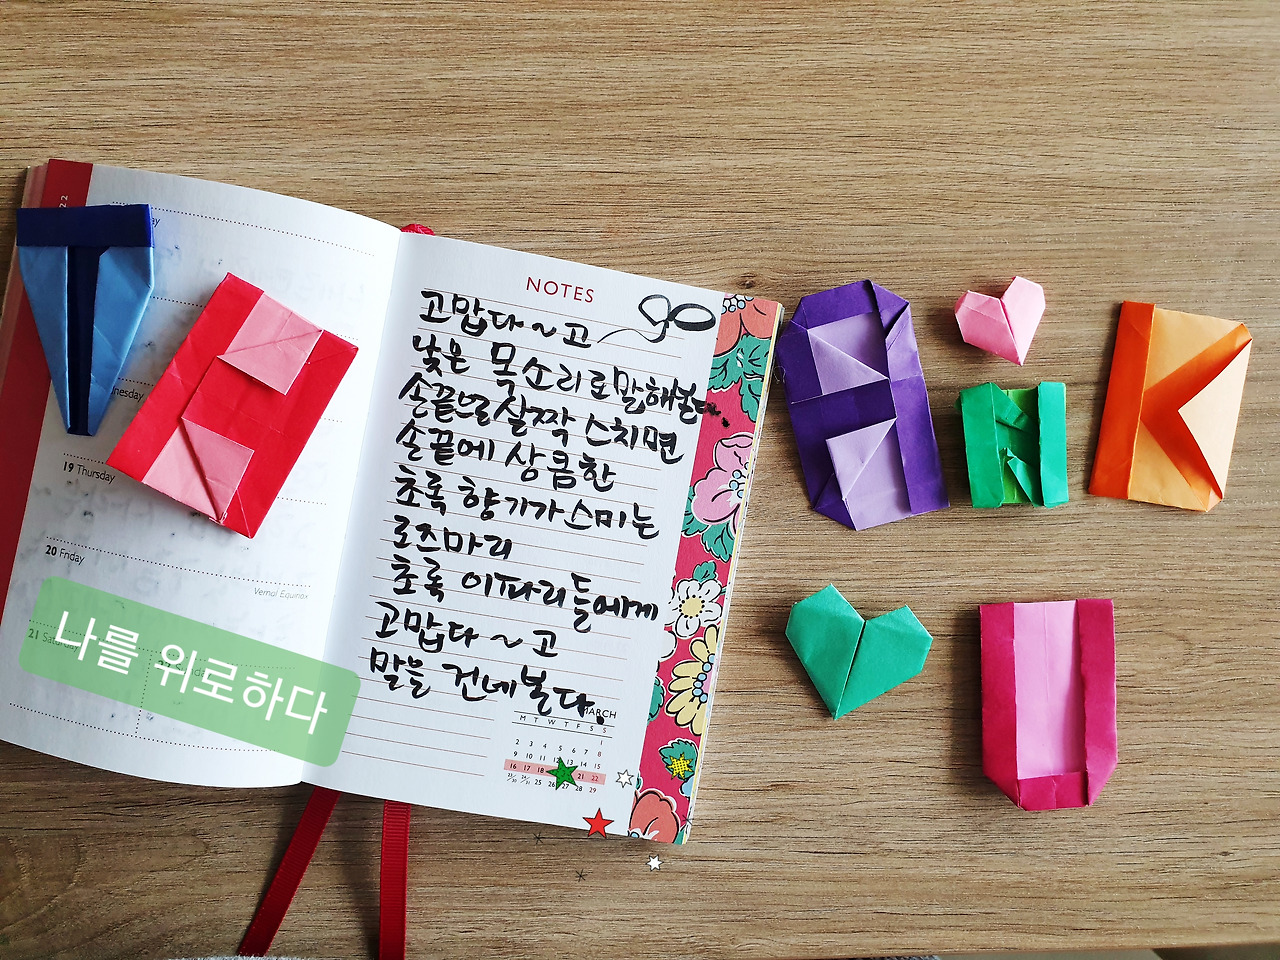 T H A N K
U
22
day
nesday
19 Thursday
20 Friday
Vernal Equinox
21 Saturday
나를 위로하다
NOTES
고맙다~고
낮은 목소리로 말해본다.
손끝으로 살짝 스치면
손끝에 상큼한
초록 향기가 스미는
로즈마리
초록 이파리들에게
고맙다~고
말을 건네본다.
MARCH
M T W T F S S
1
2 3 4 5 6 7 8
9 10 11 12 13 14 15
16 17 18 21 22
23/30 24/31 25 26 27 28 29